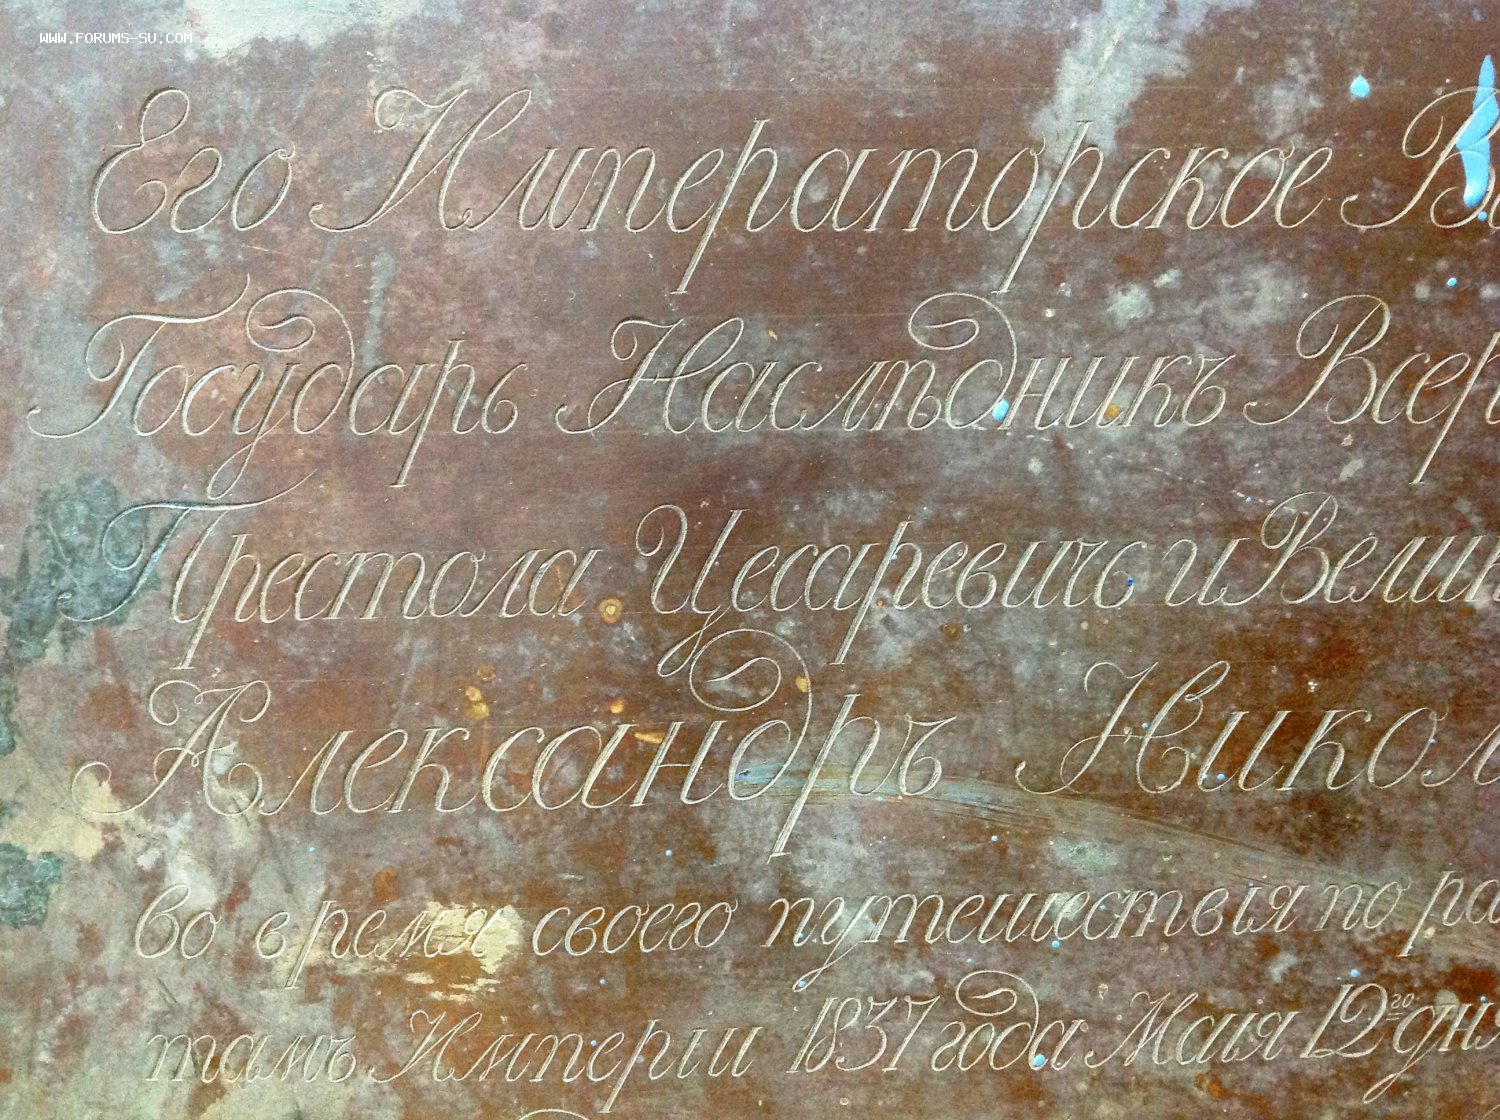 WWW.FORUMS-SU.COM
Его Императорское
Государь Наслѣдникъ
Престола Цесаревичь и
Александръ
во время своего путешествія по
тамъ Имперіи 1837 года Маія 12го дня